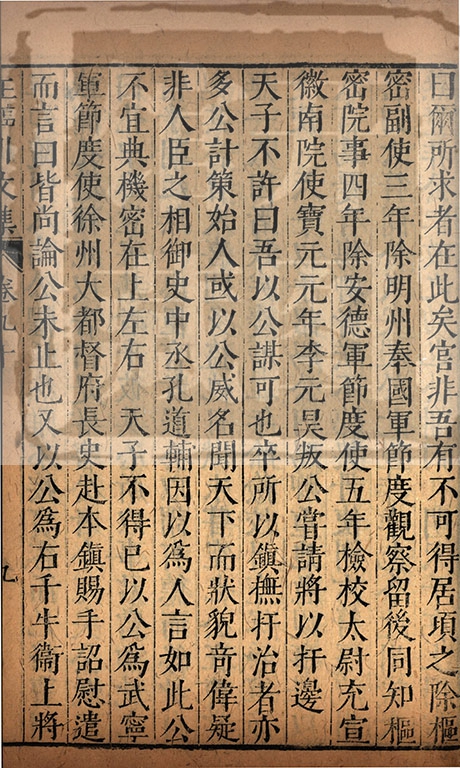 曰爾所求者在此矣官非吾有不可得居頃之除樞
密副使三年除明州奉國軍節度觀察留後同知樞
密院事四年除安德軍節度使五年檢校太尉充宣
徽南院使寶元元年李元昊叛公嘗請將以扞邊
天子不許曰吾以公謀可也卒所以鎮撫扞治者亦
多公計策始人或以公威名聞天下而狀貌奇偉疑
非人臣之相御史中丞孔道輔因以為人言如此公
不宜典機密在上左右 天子不得已以公為武寧
軍節度使徐州大都督府長史赴本鎮賜手詔慰遣
而言曰皆尚論公未止也又以公為右千牛衞上將
王臨川文集 卷九十 九